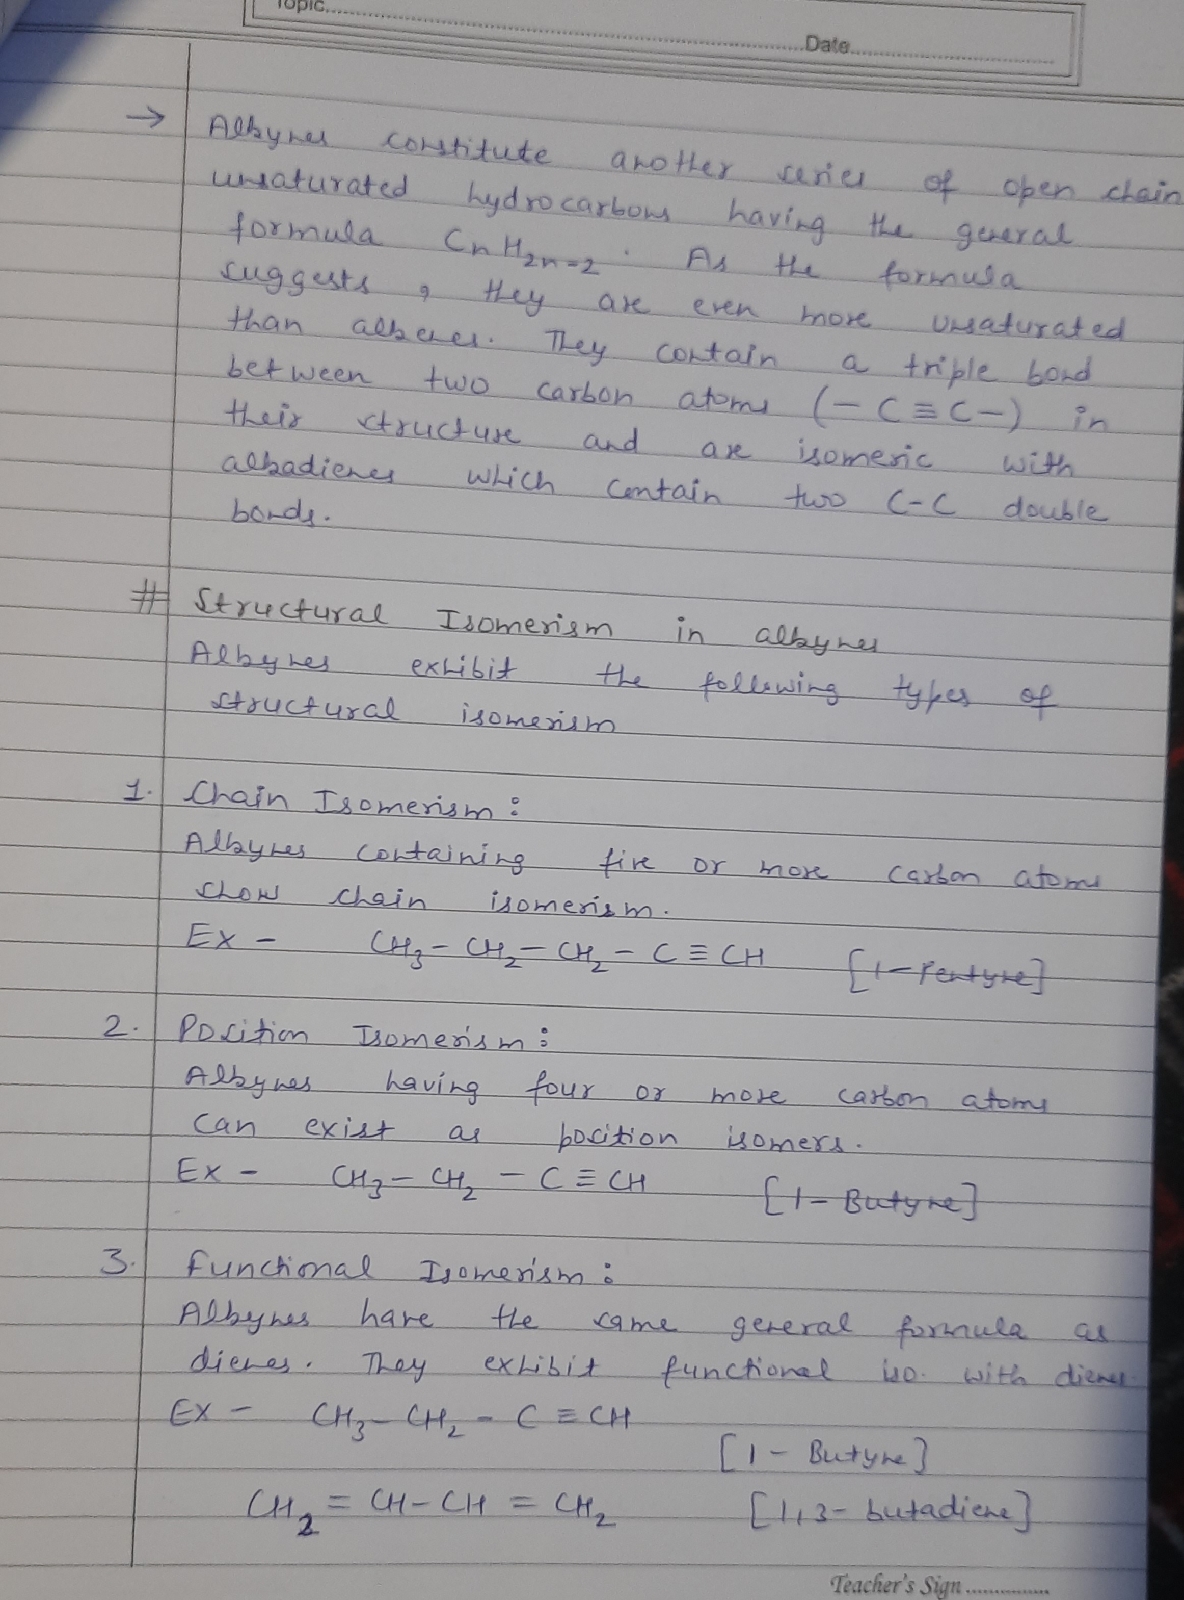 Topic
Date
→ Alkynes constitute another series of open chain
unsaturated hydrocarbons having the general
formula CnH2n-2. As the formula
suggests, they are even more unsaturated
than alkenes. They contain a triple bond
between two carbon atoms (-C≡C-) in
their structure and are isomeric with
alkadienes which contain two C-C double
bonds.
# Structural Isomerism in alkynes
Alkynes exhibit the following types of
structural isomerism
1. Chain Isomerism:
Alkynes containing five or more carbon atoms
show chain isomerism.
Ex - CH3-CH2-CH2-C≡CH [1-Pentyne]
2. Position Isomerism:
Alkynes having four or more carbon atoms
can exist as position isomers.
Ex - CH3-CH2-C≡CH [1-Butyne]
3. Functional Isomerism:
Alkynes have the same general formula as
dienes. They exhibit functional iso. with dienes.
Ex - CH3-CH2-C≡CH
[1-Butyne]
CH2=CH-CH=CH2 [1,3-butadiene]
Teacher's Sign